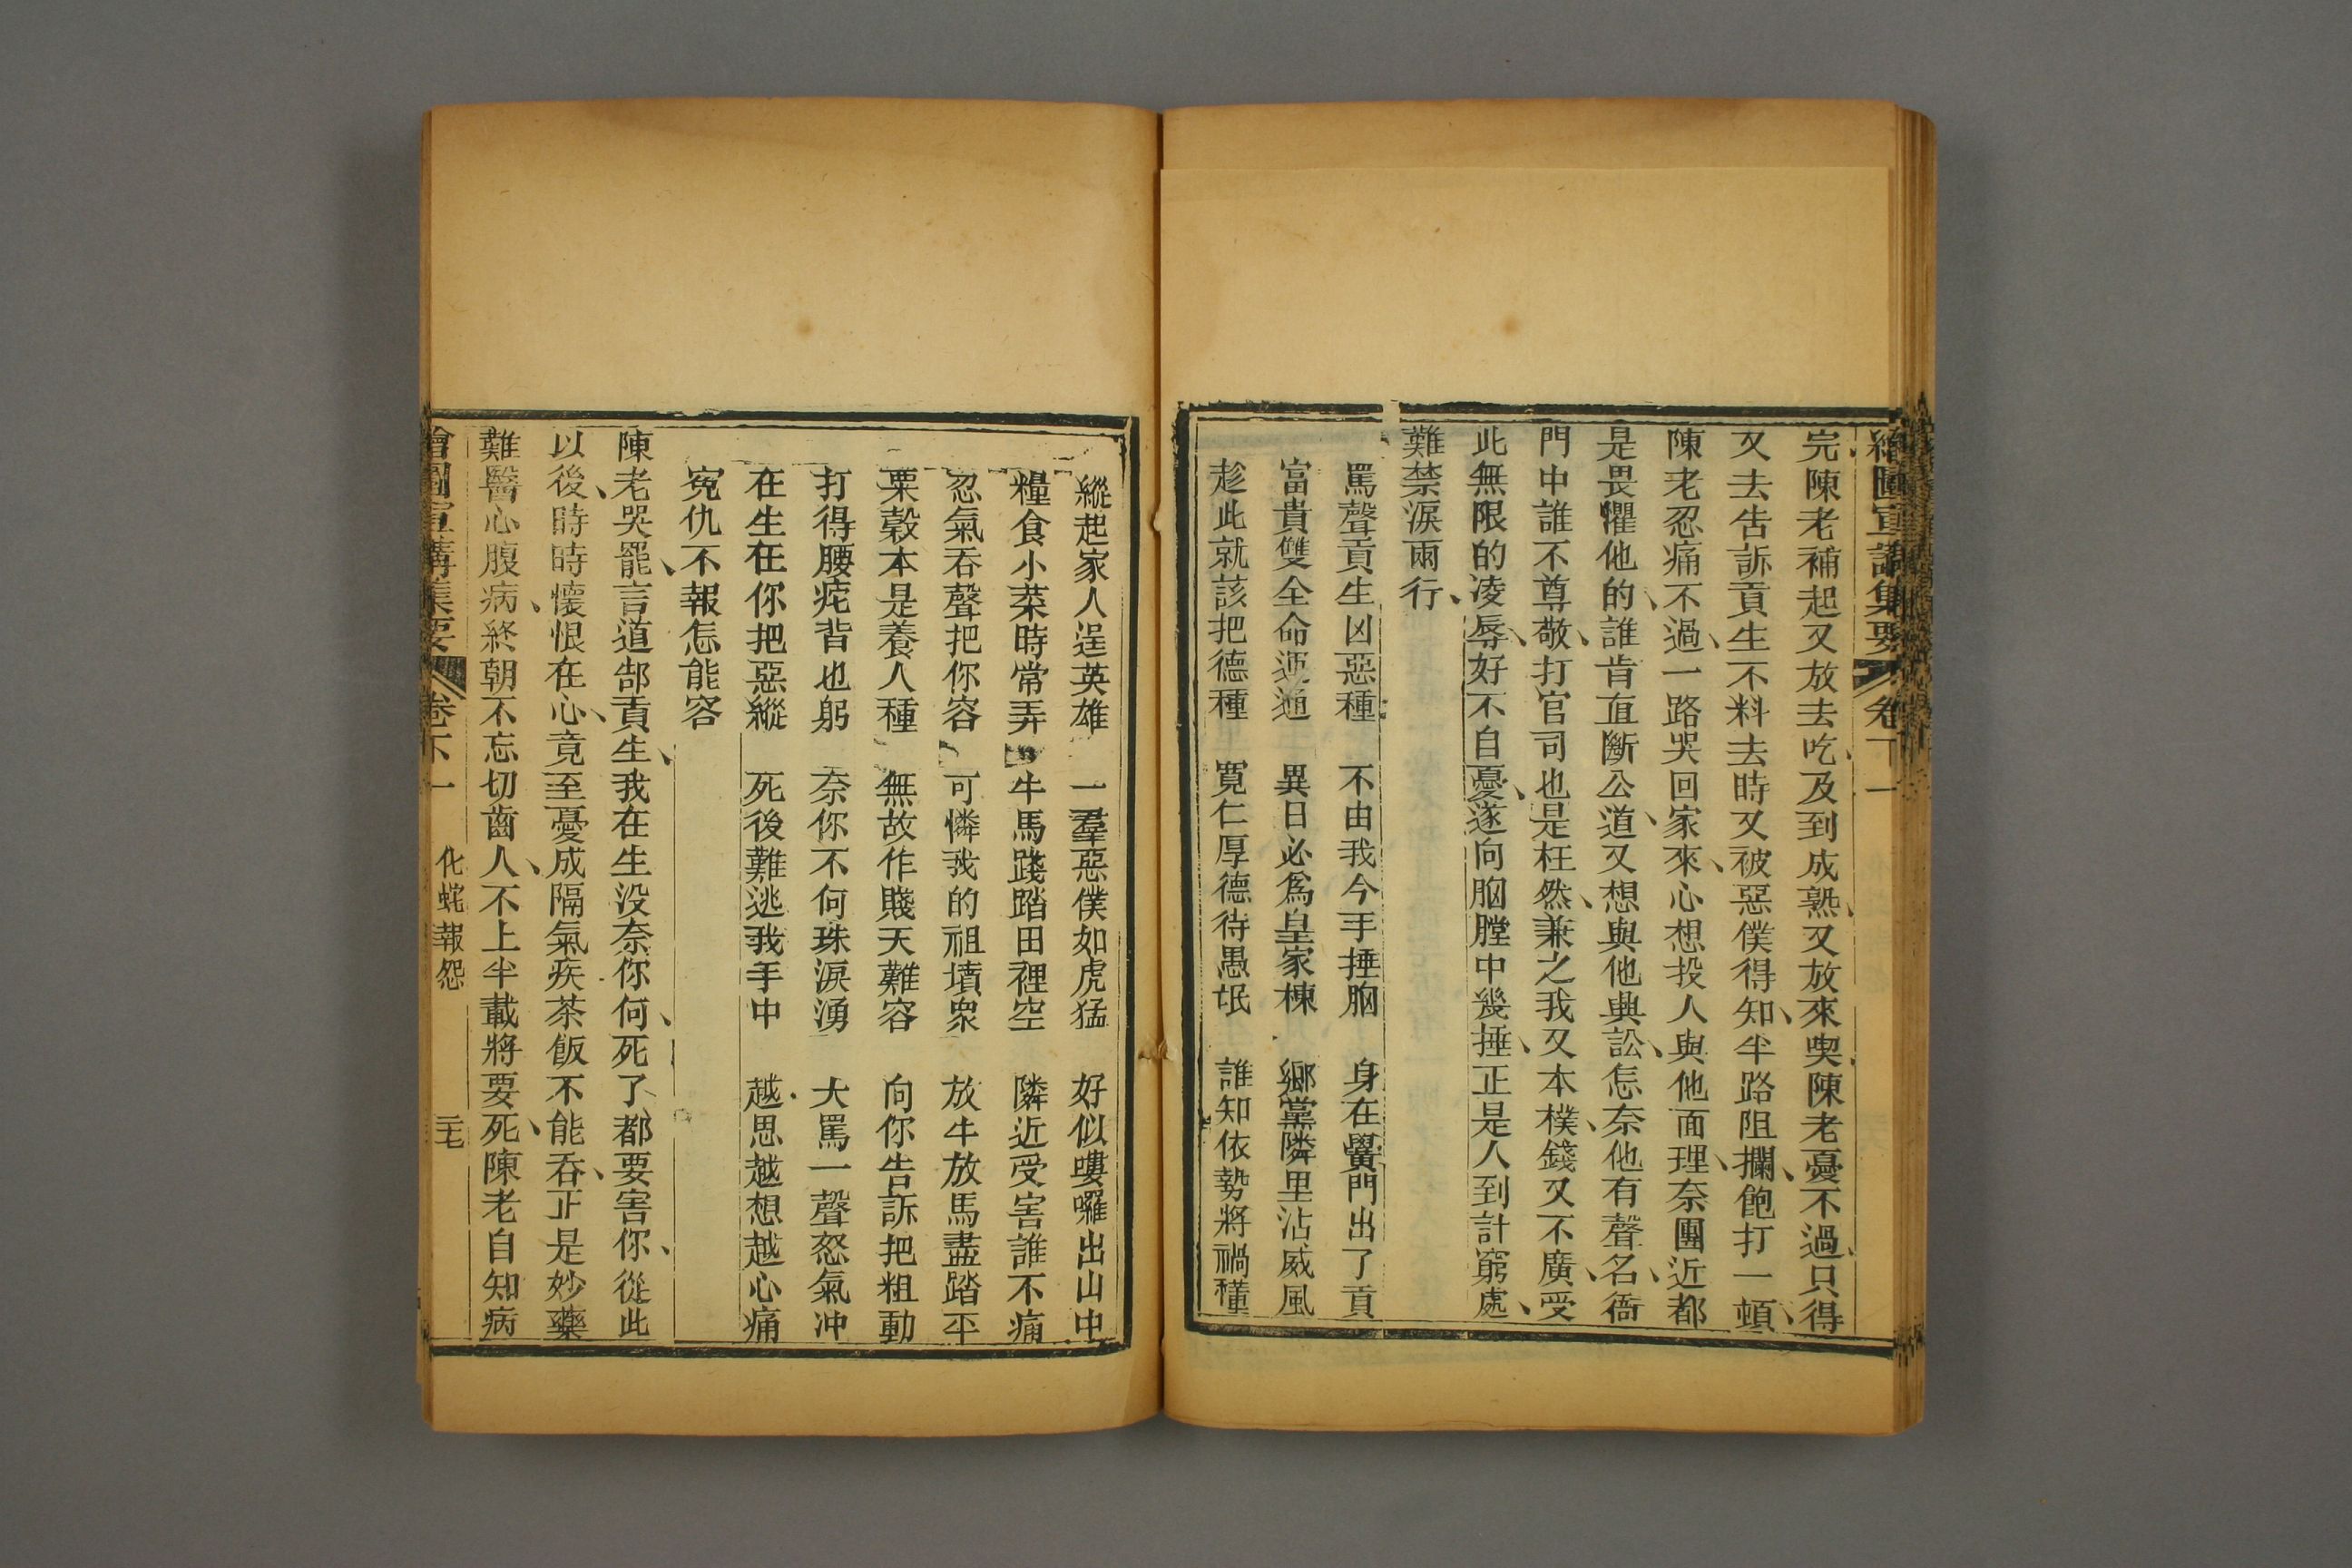 繪圖宣講集要 卷下一
完陳老補起又放去吃及到成熟又放來喫陳老憂不過只得
又去告訴貢生不料去時又被惡僕得知半路阻攔飽打一頓
陳老忍痛不過一路哭回家來心想投人與他面理奈團近都
是畏懼他的誰肯直斷公道又想與他興訟怎奈他有聲名衙
門中誰不尊敬打官司也是枉然兼之我又本樸錢又不廣受
此無限的凌辱好不自憂遂向胸膛中幾捶正是人到計窮處
難禁淚兩行
罵聲貢生凶惡種 不由我今手捶胸 身在黌門出了貢
富貴雙全命運通 異日必為皇家棟 鄉黨隣里沾威風
趁此就該把德種 寬仁厚德待愚氓 誰知依勢將禍種
縱起家人逞英雄 一羣惡僕如虎猛 好似嘍囉出山中
糧食小菜時常弄 牛馬踐踏田裡空 隣近受害誰不痛
忍氣吞聲把你容 可憐我的祖墳衆 放牛放馬盡踏平
粟穀本是養人種 無故作賤天難容 向你告訴把粗動
打得腰疺背也躬 奈你不何珠淚湧 大罵一聲怒氣冲
在生在你把惡縱 死後難逃我手中 越思越想越心痛
寃仇不報怎能容
陳老哭罷言道郜貢生我在生没奈你何死了都要害你從此
以後時時懷恨在心竟至憂成隔氣疾茶飯不能吞正是妙藥
難醫心腹病終朝不忘切齒人不上半載將要死陳老自知病
繪圖宣講集要 卷下一 化蛇報怨 三七